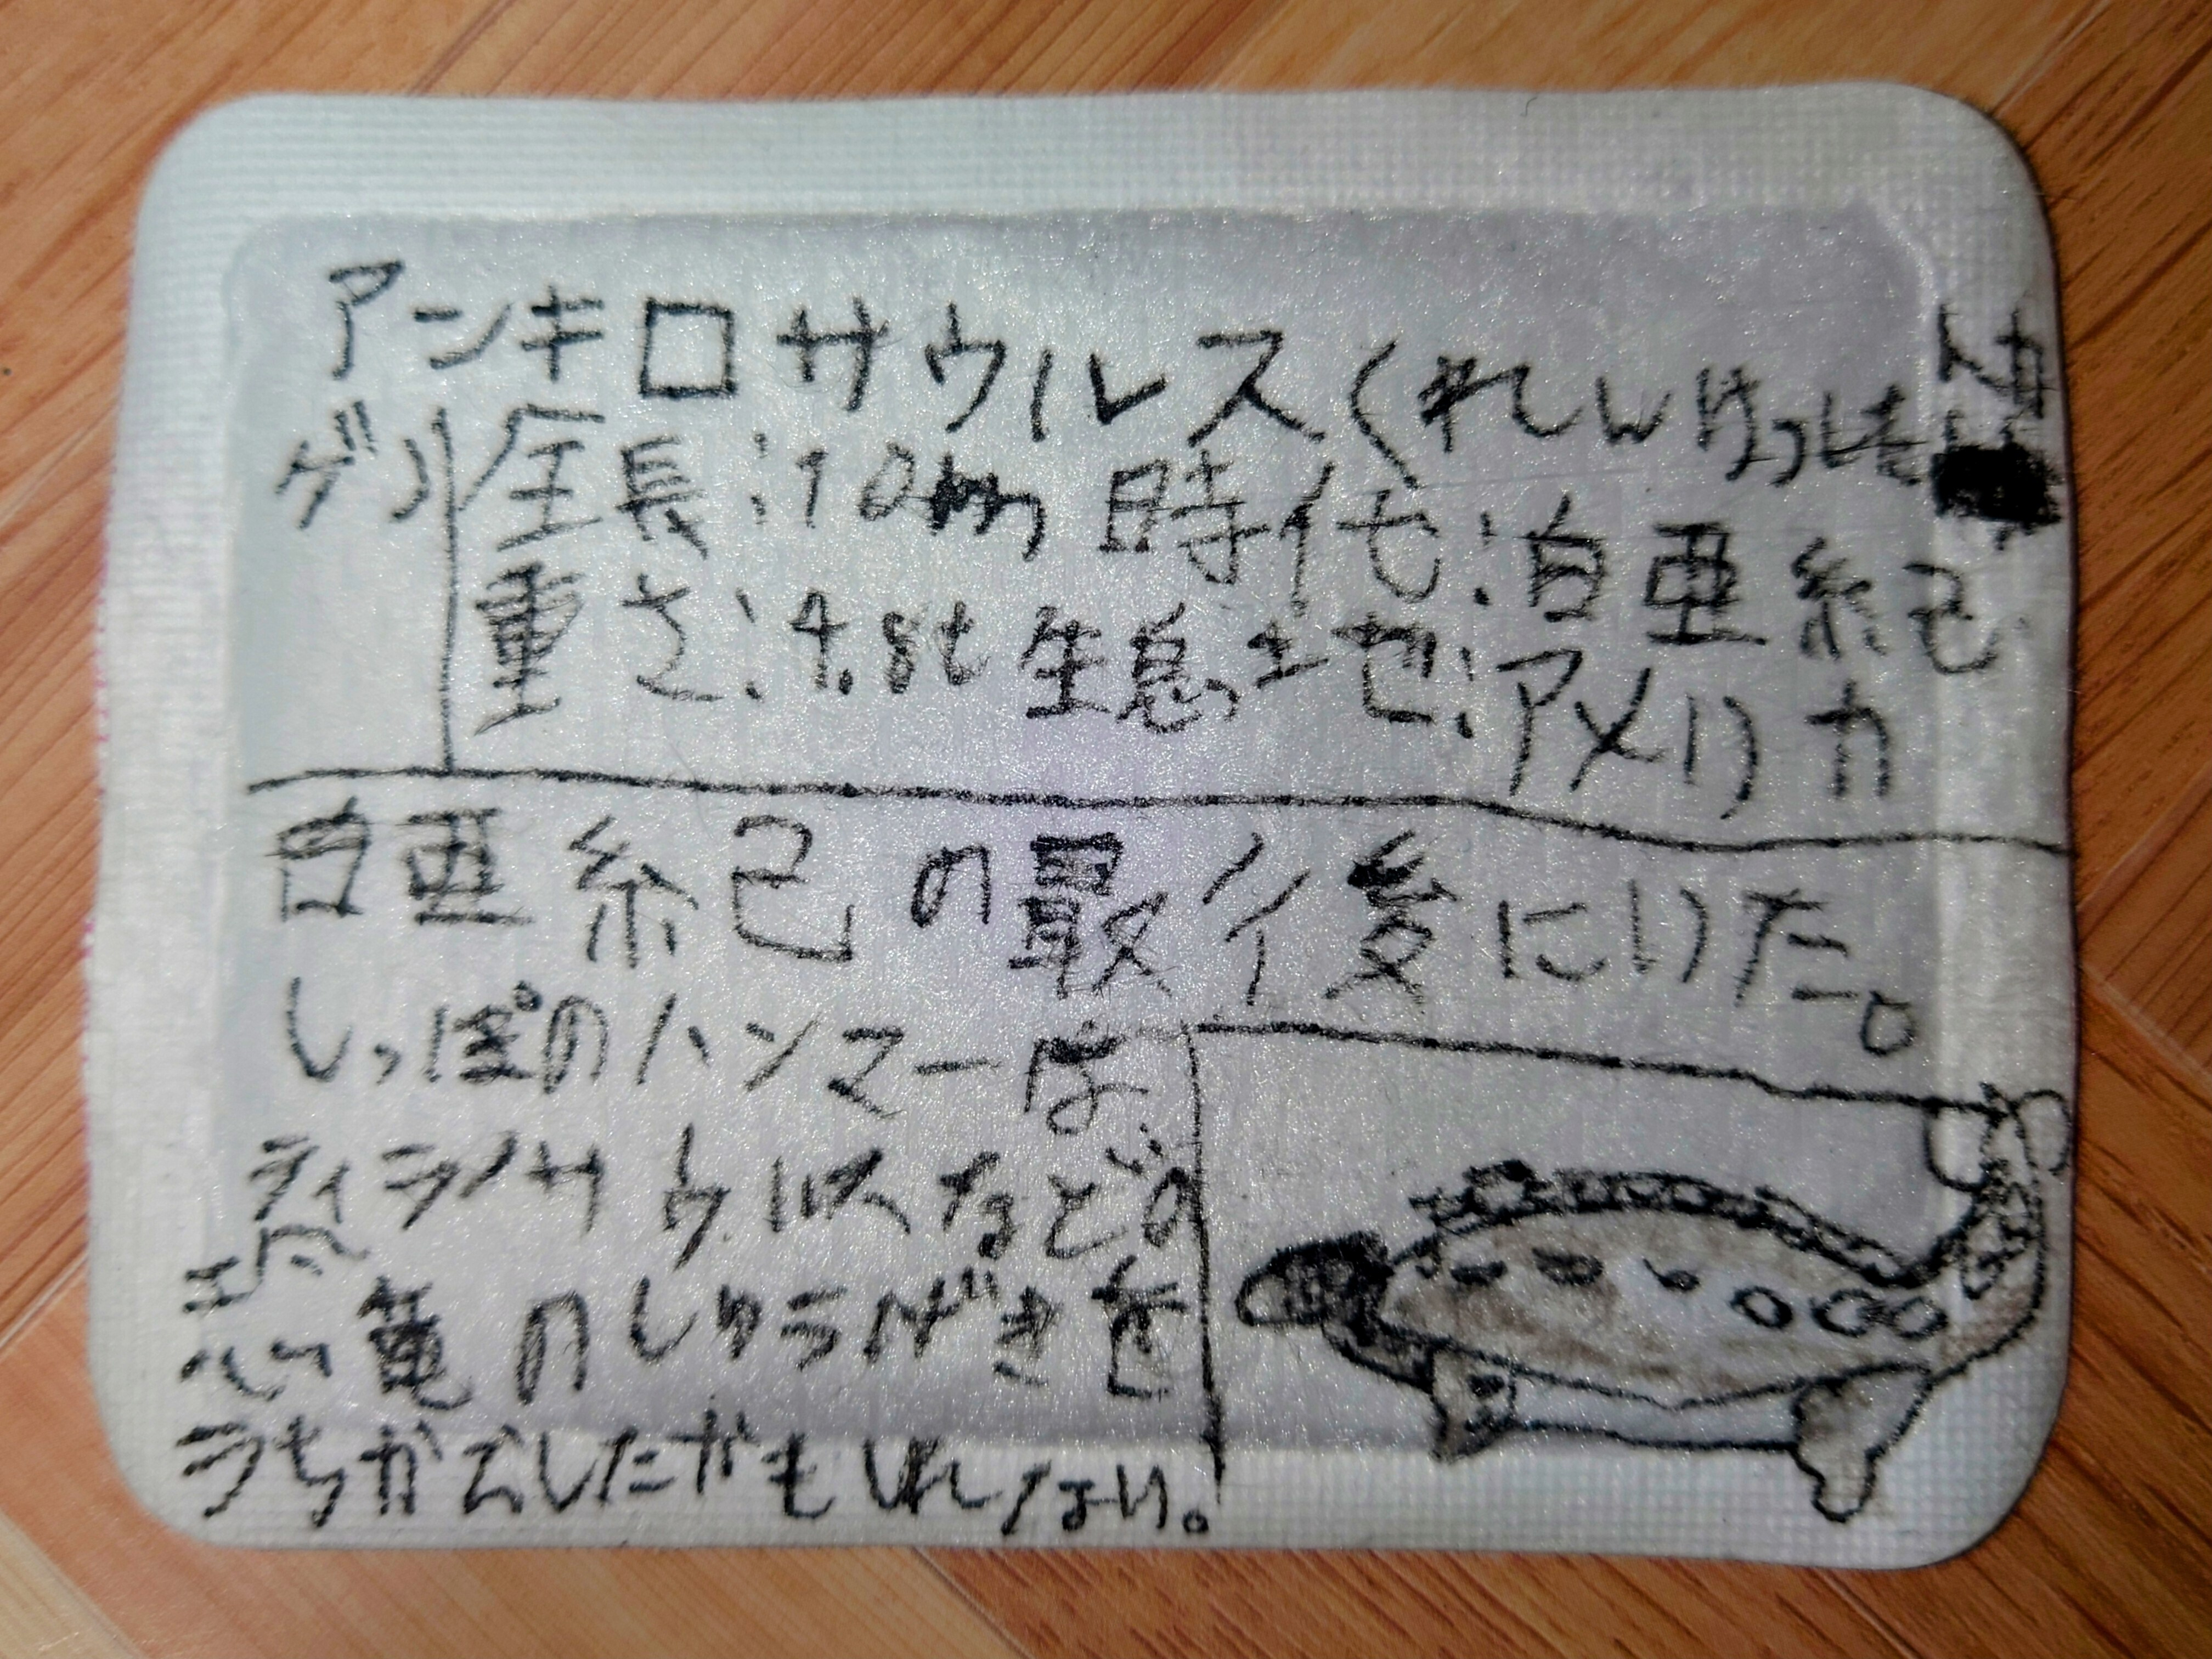 アンキロサウルス(れんけつしたトカゲ)
全長:10m 時代:白亜紀
重さ:4.8t 生息地:アメリカ
白亜紀の最後にいた。
しっぽのハンマーは、
ティラノサウルスなどの
恐竜のしゅうげきを
うちかえしたかもしれない。